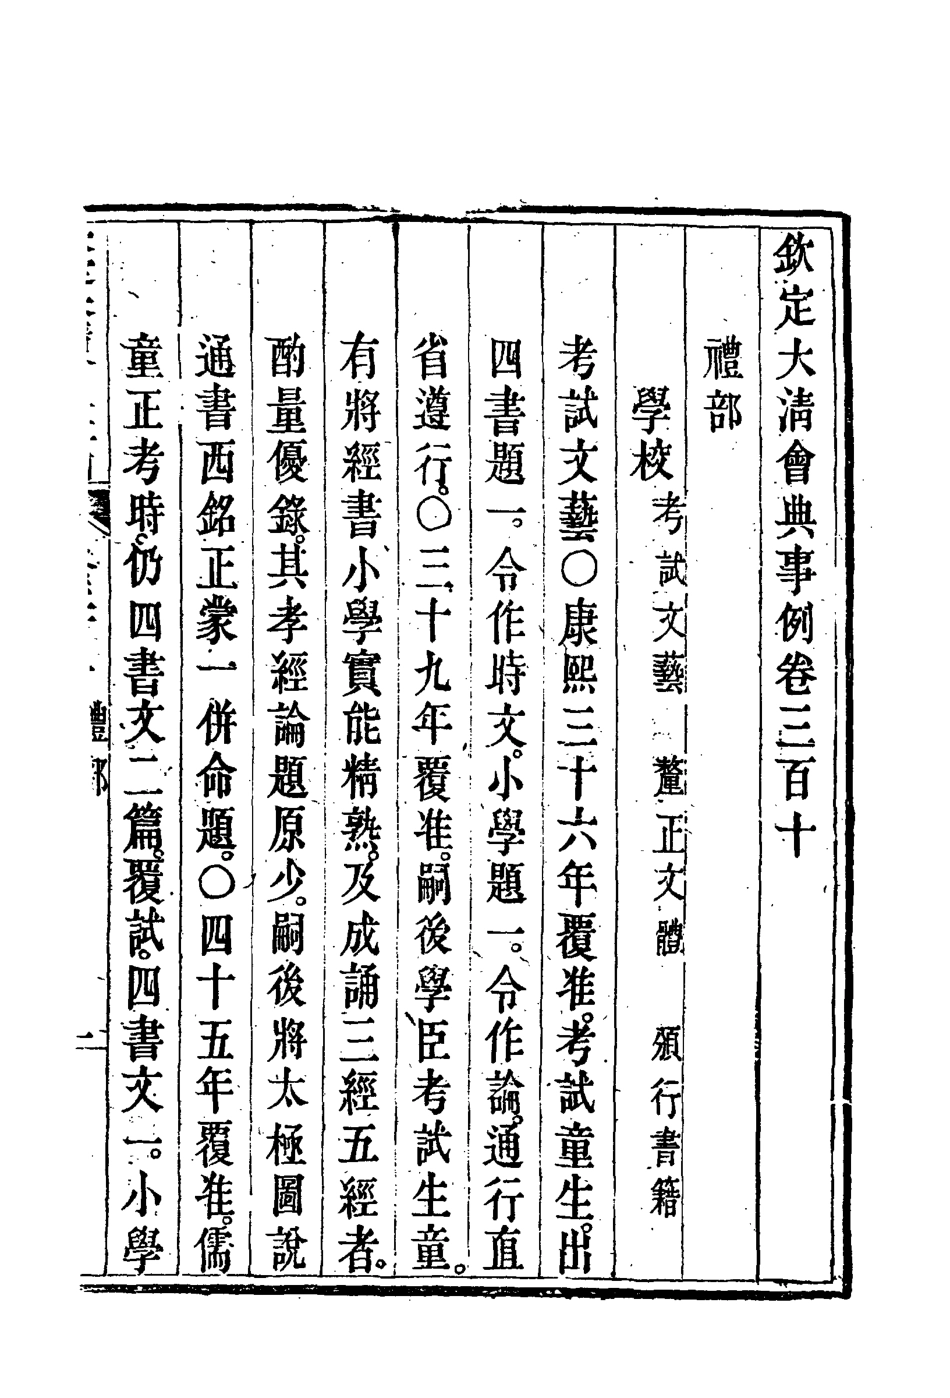 欽定大清會典事例卷三百十
禮部
學校 考試文藝 釐正文體 頒行書籍
考試文藝○康熙三十六年覆准。考試童生。出
四書題一。令作時文。小學題一。令作論。通行直
省遵行。○三十九年覆准。嗣後學臣考試生童。
有將經書小學實能精熟。及成誦三經五經者。
酌量優錄。其孝經論題原少。嗣後將太極圖說
通書西銘正蒙一併命題。○四十五年覆准。儒
童正考時。仍四書文二篇。覆試。四書文一。小學
禮部